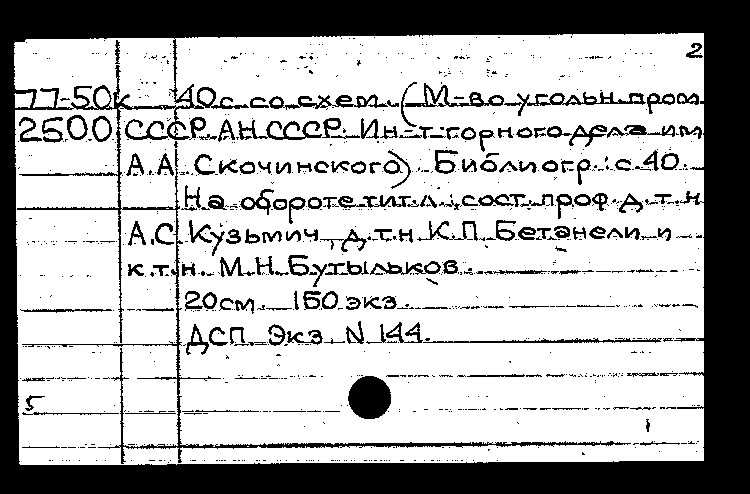 2
77-50к 40с. со схем. (М-во угольн. пром.
2500 СССР. АН СССР. Ин-т горного дела им
А.А. Скочинского). Библиогр.: с 40.
На обороте тит. л.: сост. проф. д. т. н
А.С. Кузьмич, д.т.н. К.П. Бетанели и
к.т.н. М.Н. Бутыльков.
20см. 150 экз.
ДСП. Экз. N 144.
5
1